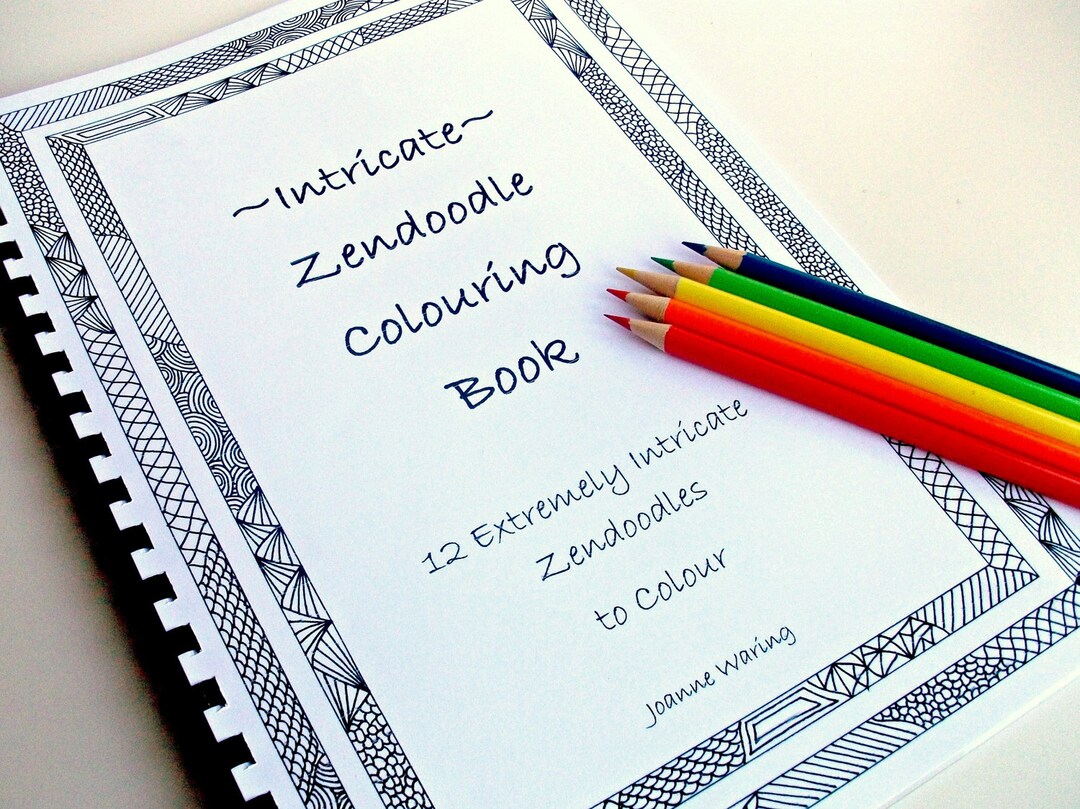 ~Intricate~
Zendoodle
Colouring
Book
12 Extremely Intricate
Zendoodles
to Colour
Joanne Waring